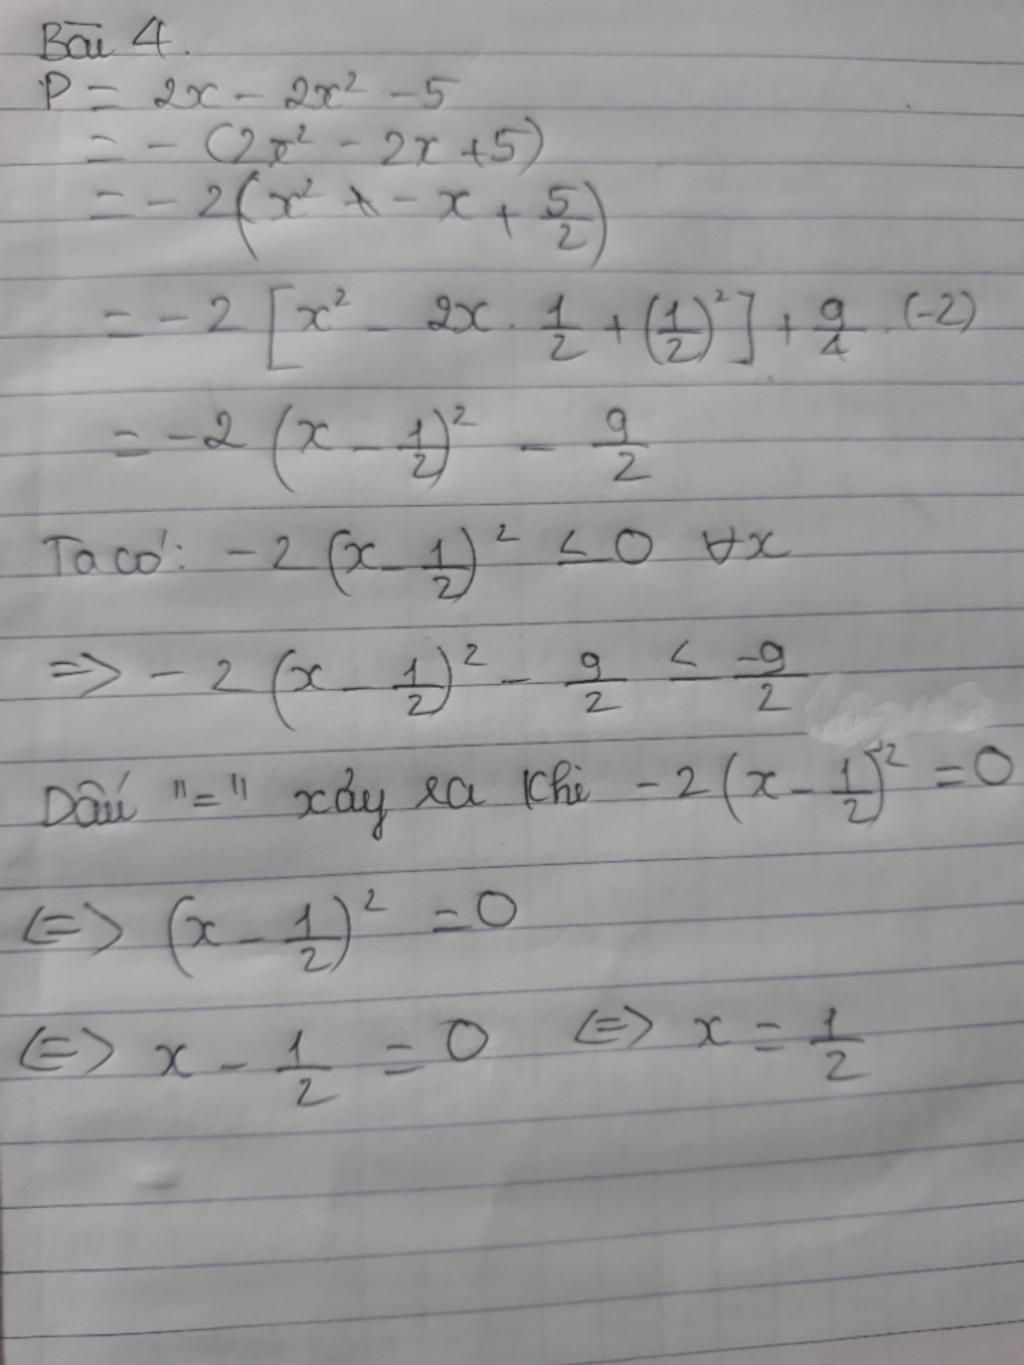 Bài 4.
P = 2x - 2x² - 5
= - (2x² - 2x + 5)
= - 2(x² + - x + 5/2)
= - 2 [x² - 2x . 1/2 + (1/2)²] + 9/4 . (-2)
= -2 (x - 1/2)² - 9/2
Ta có: -2 (x - 1/2)² ≤ 0 ∀x
=> - 2 (x - 1/2)² - 9/2 ≤ -9/2
Dấu "=" xảy ra khi -2 (x - 1/2)² = 0
<=> (x - 1/2)² = 0
<=> x - 1/2 = 0 <=> x = 1/2